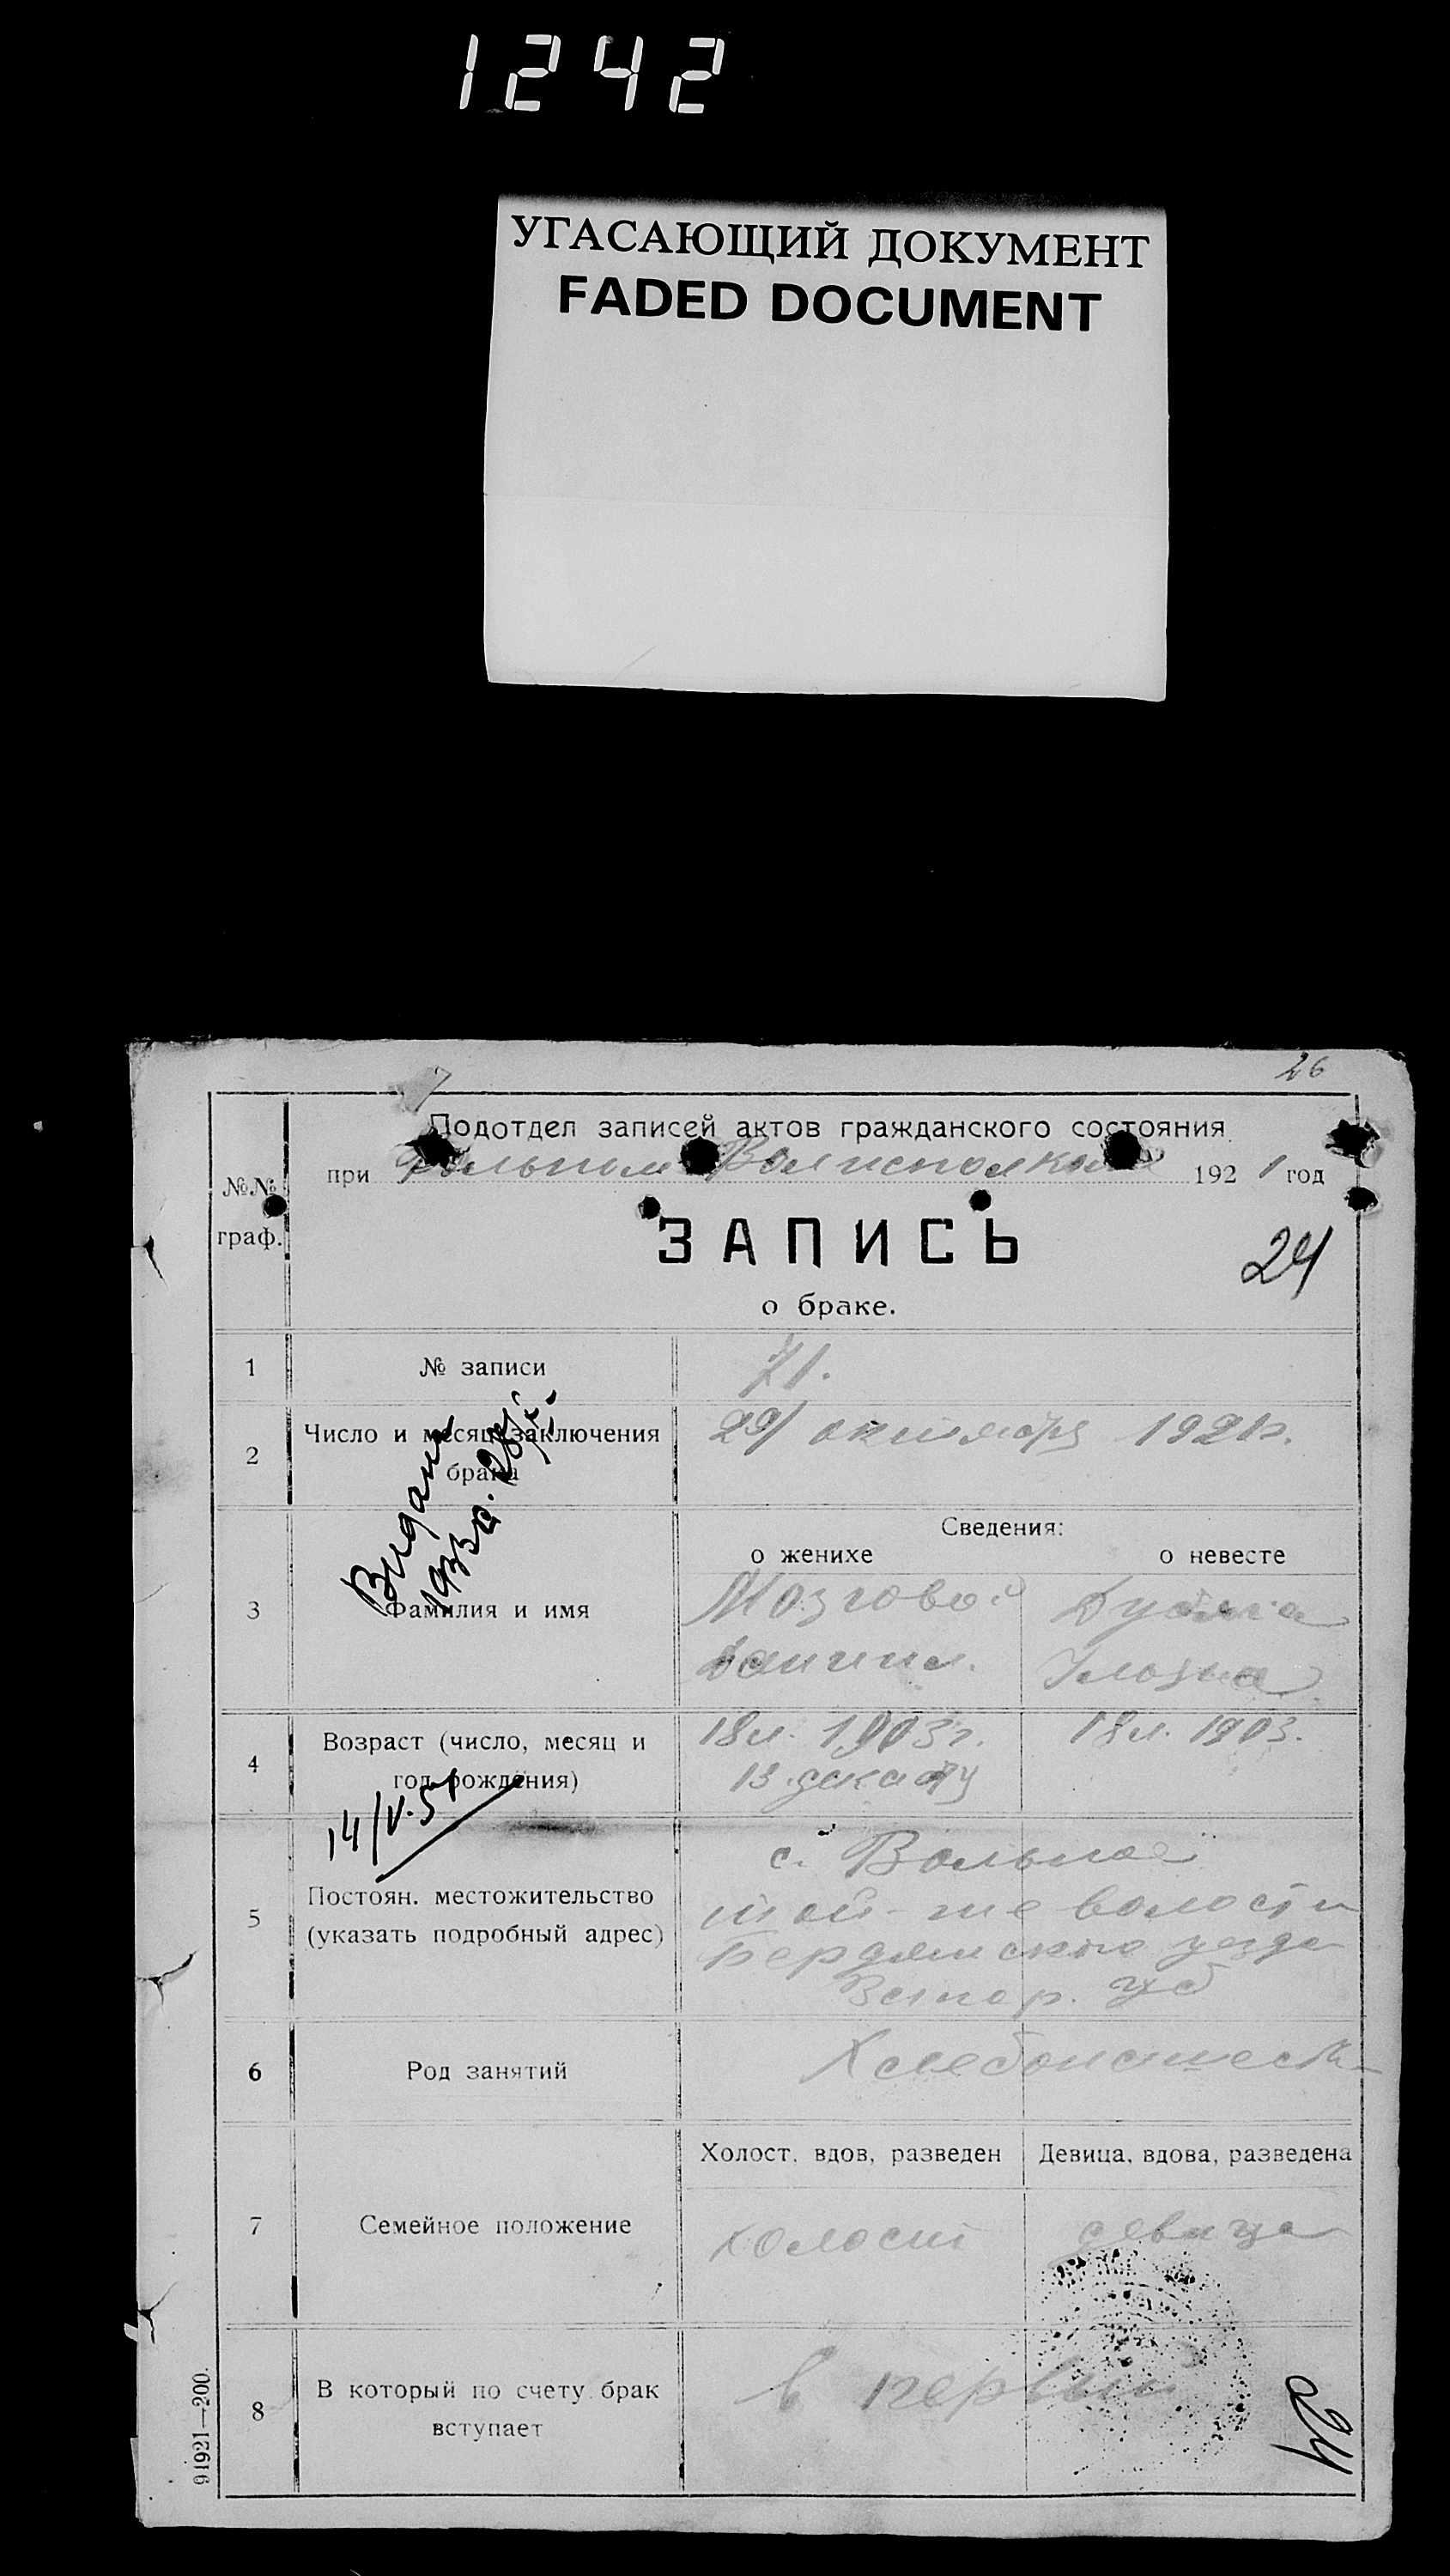 1242
УГАСАЮЩИЙ ДОКУМЕНТ
FADED DOCUMENT
26
Подотдел записей актов гражданского состояния
при Волисполкоме 1921 год
№№
граф.
ЗАПИСЬ
24
о браке.
1 № записи 71.
2 Число и месяц заключения брака 29/ октября 1921г.
Сведения:
о женихе о невесте
3 Фамилия и имя
Мозговой
Даниил.
4 Возраст (число, месяц и год рождения)
18 л. 1903 г. 18 л. 1903.
13 декабр
14/V.51
5 Постоян. местожительство (указать подробный адрес)
с. Вольное
той-же волости
Бердянского уезда
Запор. губ
6 Род занятий
Холост, вдов, разведен Девица, вдова, разведена
7 Семейное положение холост девица
8 В который по счету брак вступает в первый
24
91921—200.